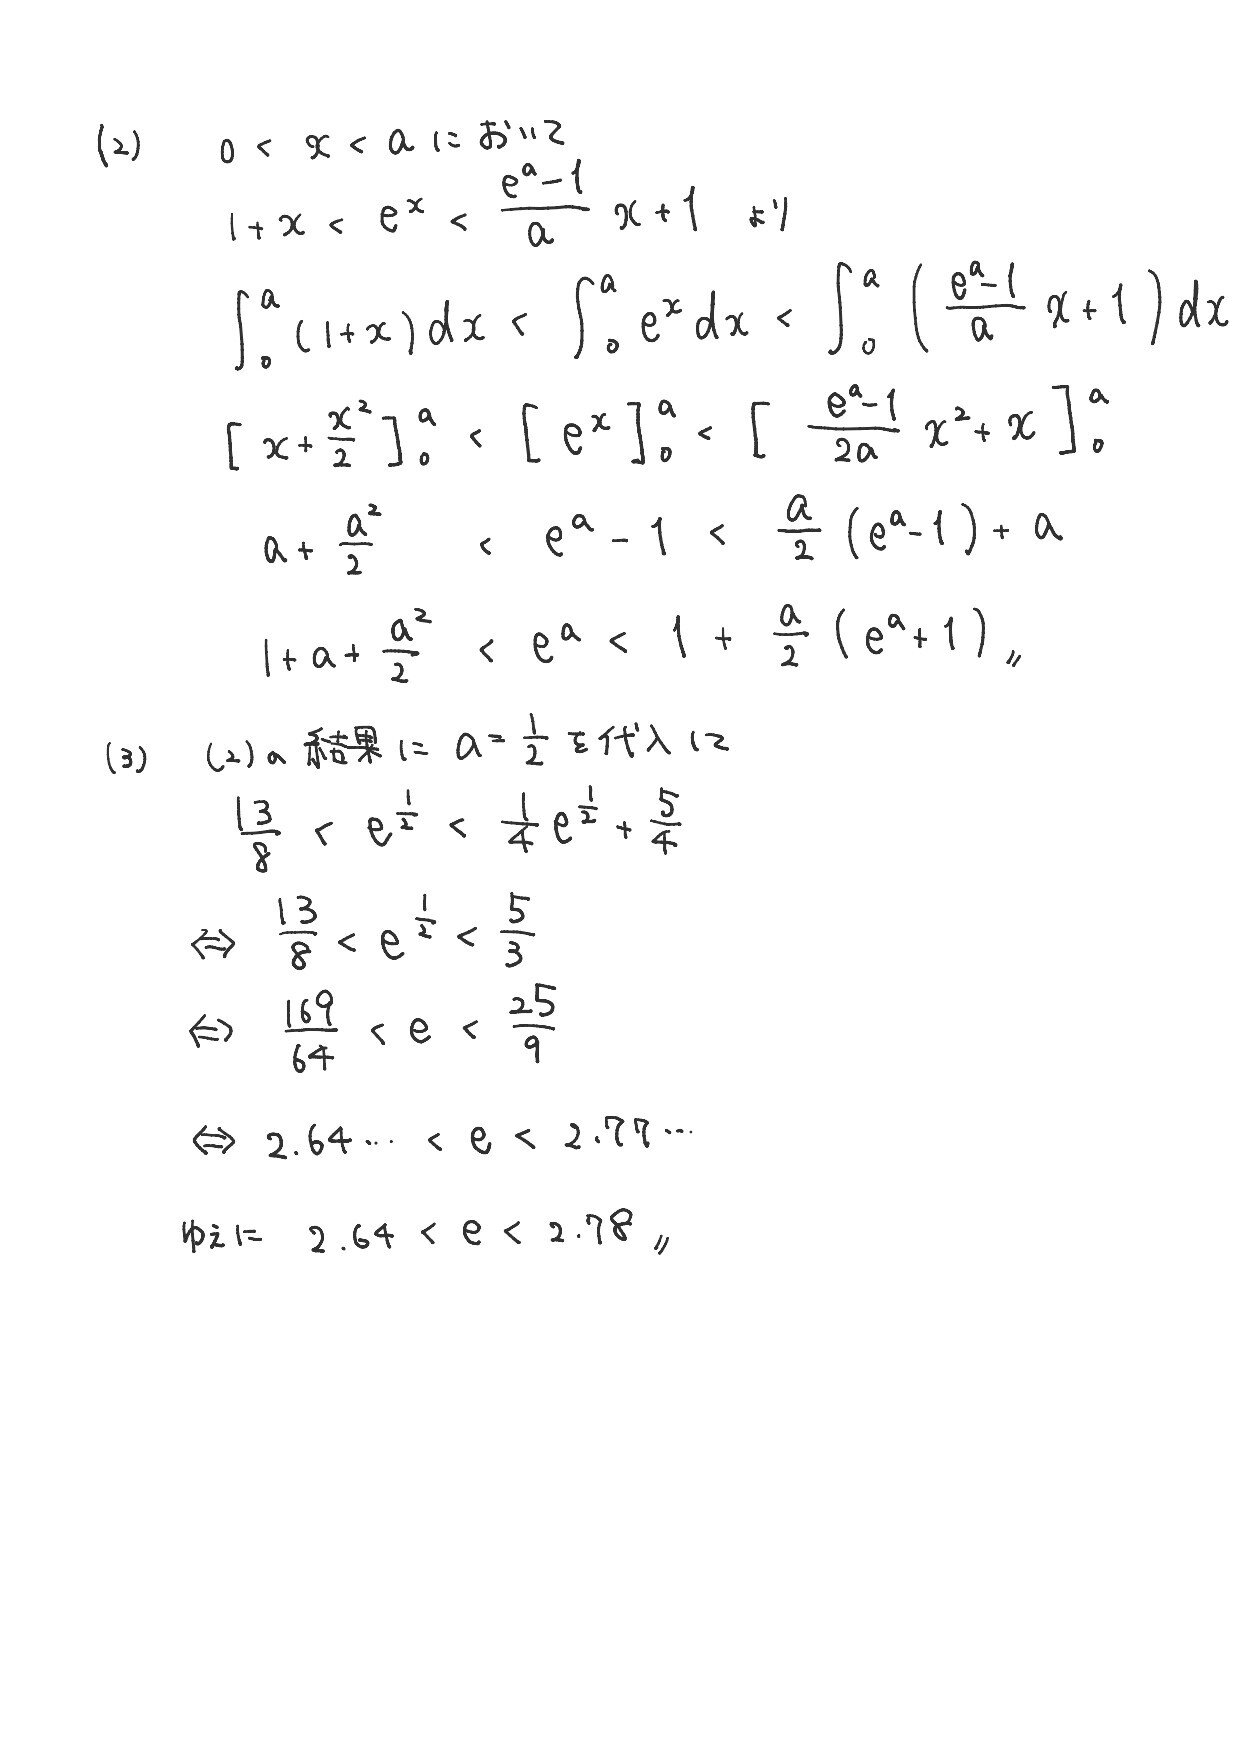 (2) 0 < x < a において
1+x < e^x < \frac{e^a-1}{a} x+1 より
\int_0^a (1+x)dx < \int_0^a e^x dx < \int_0^a ( \frac{e^a-1}{a} x+1 ) dx
[ x+\frac{x^2}{2} ]_0^a < [ e^x ]_0^a < [ \frac{e^a-1}{2a} x^2+x ]_0^a
a+\frac{a^2}{2} < e^a-1 < \frac{a}{2} (e^a-1)+a
1+a+\frac{a^2}{2} < e^a < 1+\frac{a}{2} (e^a+1)〃
(3) (2)の結果に a=\frac{1}{2} を代入して
\frac{13}{8} < e^{\frac{1}{2}} < \frac{1}{4}e^{\frac{1}{2}}+\frac{5}{4}
⇔ \frac{13}{8} < e^{\frac{1}{2}} < \frac{5}{3}
⇔ \frac{169}{64} < e < \frac{25}{9}
⇔ 2.64… < e < 2.77…
ゆえに 2.64 < e < 2.78〃